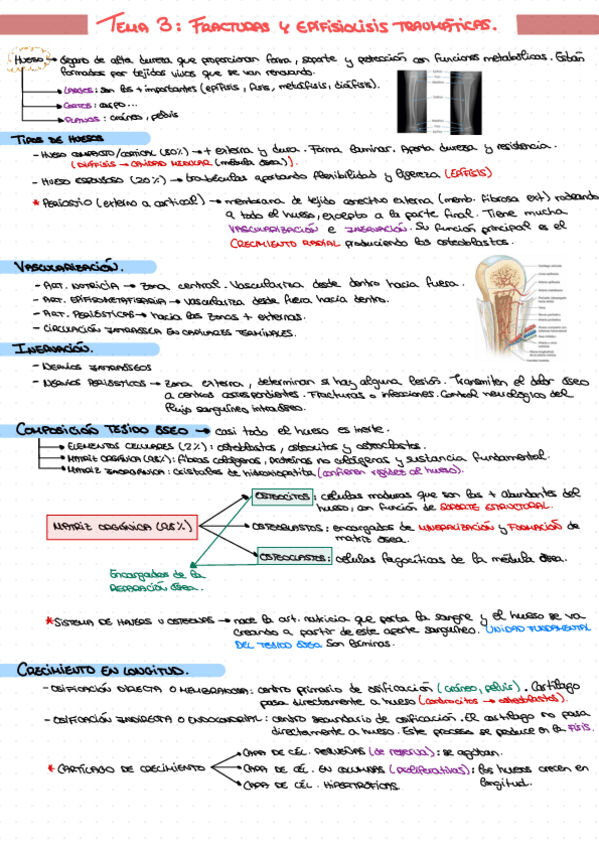 TEMA 3: FRACTURAS Y EPIFISIOLISIS TRAUMÁTICAS.
HUESO → órgano de alta dureza que proporcionan forma, soporte y protección con funciones metabólicas. Están
formados por tejidos vivos que se van renovando.
→ LARGOS: son los + importantes (epífisis, fisis, metáfisis, diáfisis).
→ CORTOS: carpo...
→ PLANOS: cráneo, pelvis
TIPOS DE HUESOS
- HUESO COMPACTO/CORTICAL (80%) → + externa y dura. Forma laminar. Aporta dureza y resistencia.
(DIÁFISIS → CAVIDAD MEDULAR (médula ósea)).
- HUESO ESPONJOSO (20%) → trabéculas aportando flexibilidad y ligereza (EPÍFISIS)
* PERIOSTIO (externo a cortical) → membrana de tejido conectivo externa (memb. fibrosa ext) rodeando
a todo el hueso, excepto a la parte final. Tiene mucha
VASCULARIZACIÓN E INERVACIÓN. Su función principal es el
CRECIMIENTO RADIAL produciendo los osteoblastos.
VASCULARIZACIÓN.
- ART. NUTRICIA → zona central. Vasculariza desde dentro hacia fuera.
- ART. EPIFISOMETAFISARIA → vasculariza desde fuera hacia dentro.
- ART. PERIÓSTICAS → hacia las zonas + externas.
- CIRCULACIÓN INTRAÓSEA EN CAPILARES TERMINALES.
INERVACIÓN.
- NERVIOS INTRAÓSEOS
- NERVIOS PERIÓSTICOS → zona externa, determinan si hay alguna lesión. Transmiten el dolor óseo
a centros correspondientes. Fracturas o infecciones. Control neurológico del
flujo sanguíneo intraóseo.
COMPOSICIÓN TEJIDO ÓSEO → casi todo el hueso es inerte.
→ ELEMENTOS CELULARES (2%): osteoblastos, osteocitos y osteoclastos.
→ MATRIZ ORGÁNICA (98%): fibras colágenas, proteínas no colágenas y sustancia fundamental.
→ MATRIZ INORGÁNICA: cristales de hidroxiapatita (confieren rigidez al hueso).
OSTEOCITOS: células maduras que son las + abundantes del
hueso, con función de SOPORTE ESTRUCTURAL.
MATRIZ ORGÁNICA (98%)
OSTEOBLASTOS: encargados de MINERALIZACIÓN y FORMACIÓN de
matriz ósea.
OSTEOCLASTOS: células fagocíticas de la médula ósea.
Encargados de la
REPARACIÓN ÓSEA.
* SISTEMA DE HAVERS U OSTEONAS → nace la art. nutricia que porta la sangre y el hueso se va
creando a partir de este aporte sanguíneo. UNIDAD FUNDAMENTAL
DEL TEJIDO ÓSEO. Son láminas.
CRECIMIENTO EN LONGITUD.
- OSIFICACIÓN DIRECTA O MEMBRANOSA: centro primario de osificación (cráneo, pelvis). Cartílago
pasa directamente a hueso (condrocitos → osteoblastos).
- OSIFICACIÓN INDIRECTA O ENDOCONDRAL: centro secundario de osificación. El cartílago no pasa
directamente a hueso. Este proceso se produce en la FISIS.
CAPA DE CÉL. PEQUEÑAS (de reserva): se agotan.
* CARTÍLAGO DE CRECIMIENTO
CAPA DE CÉL. EN COLUMNAS (proliferativas): los huesos crecen en
longitud.
CAPA DE CÉL. HIPERTRÓFICAS.